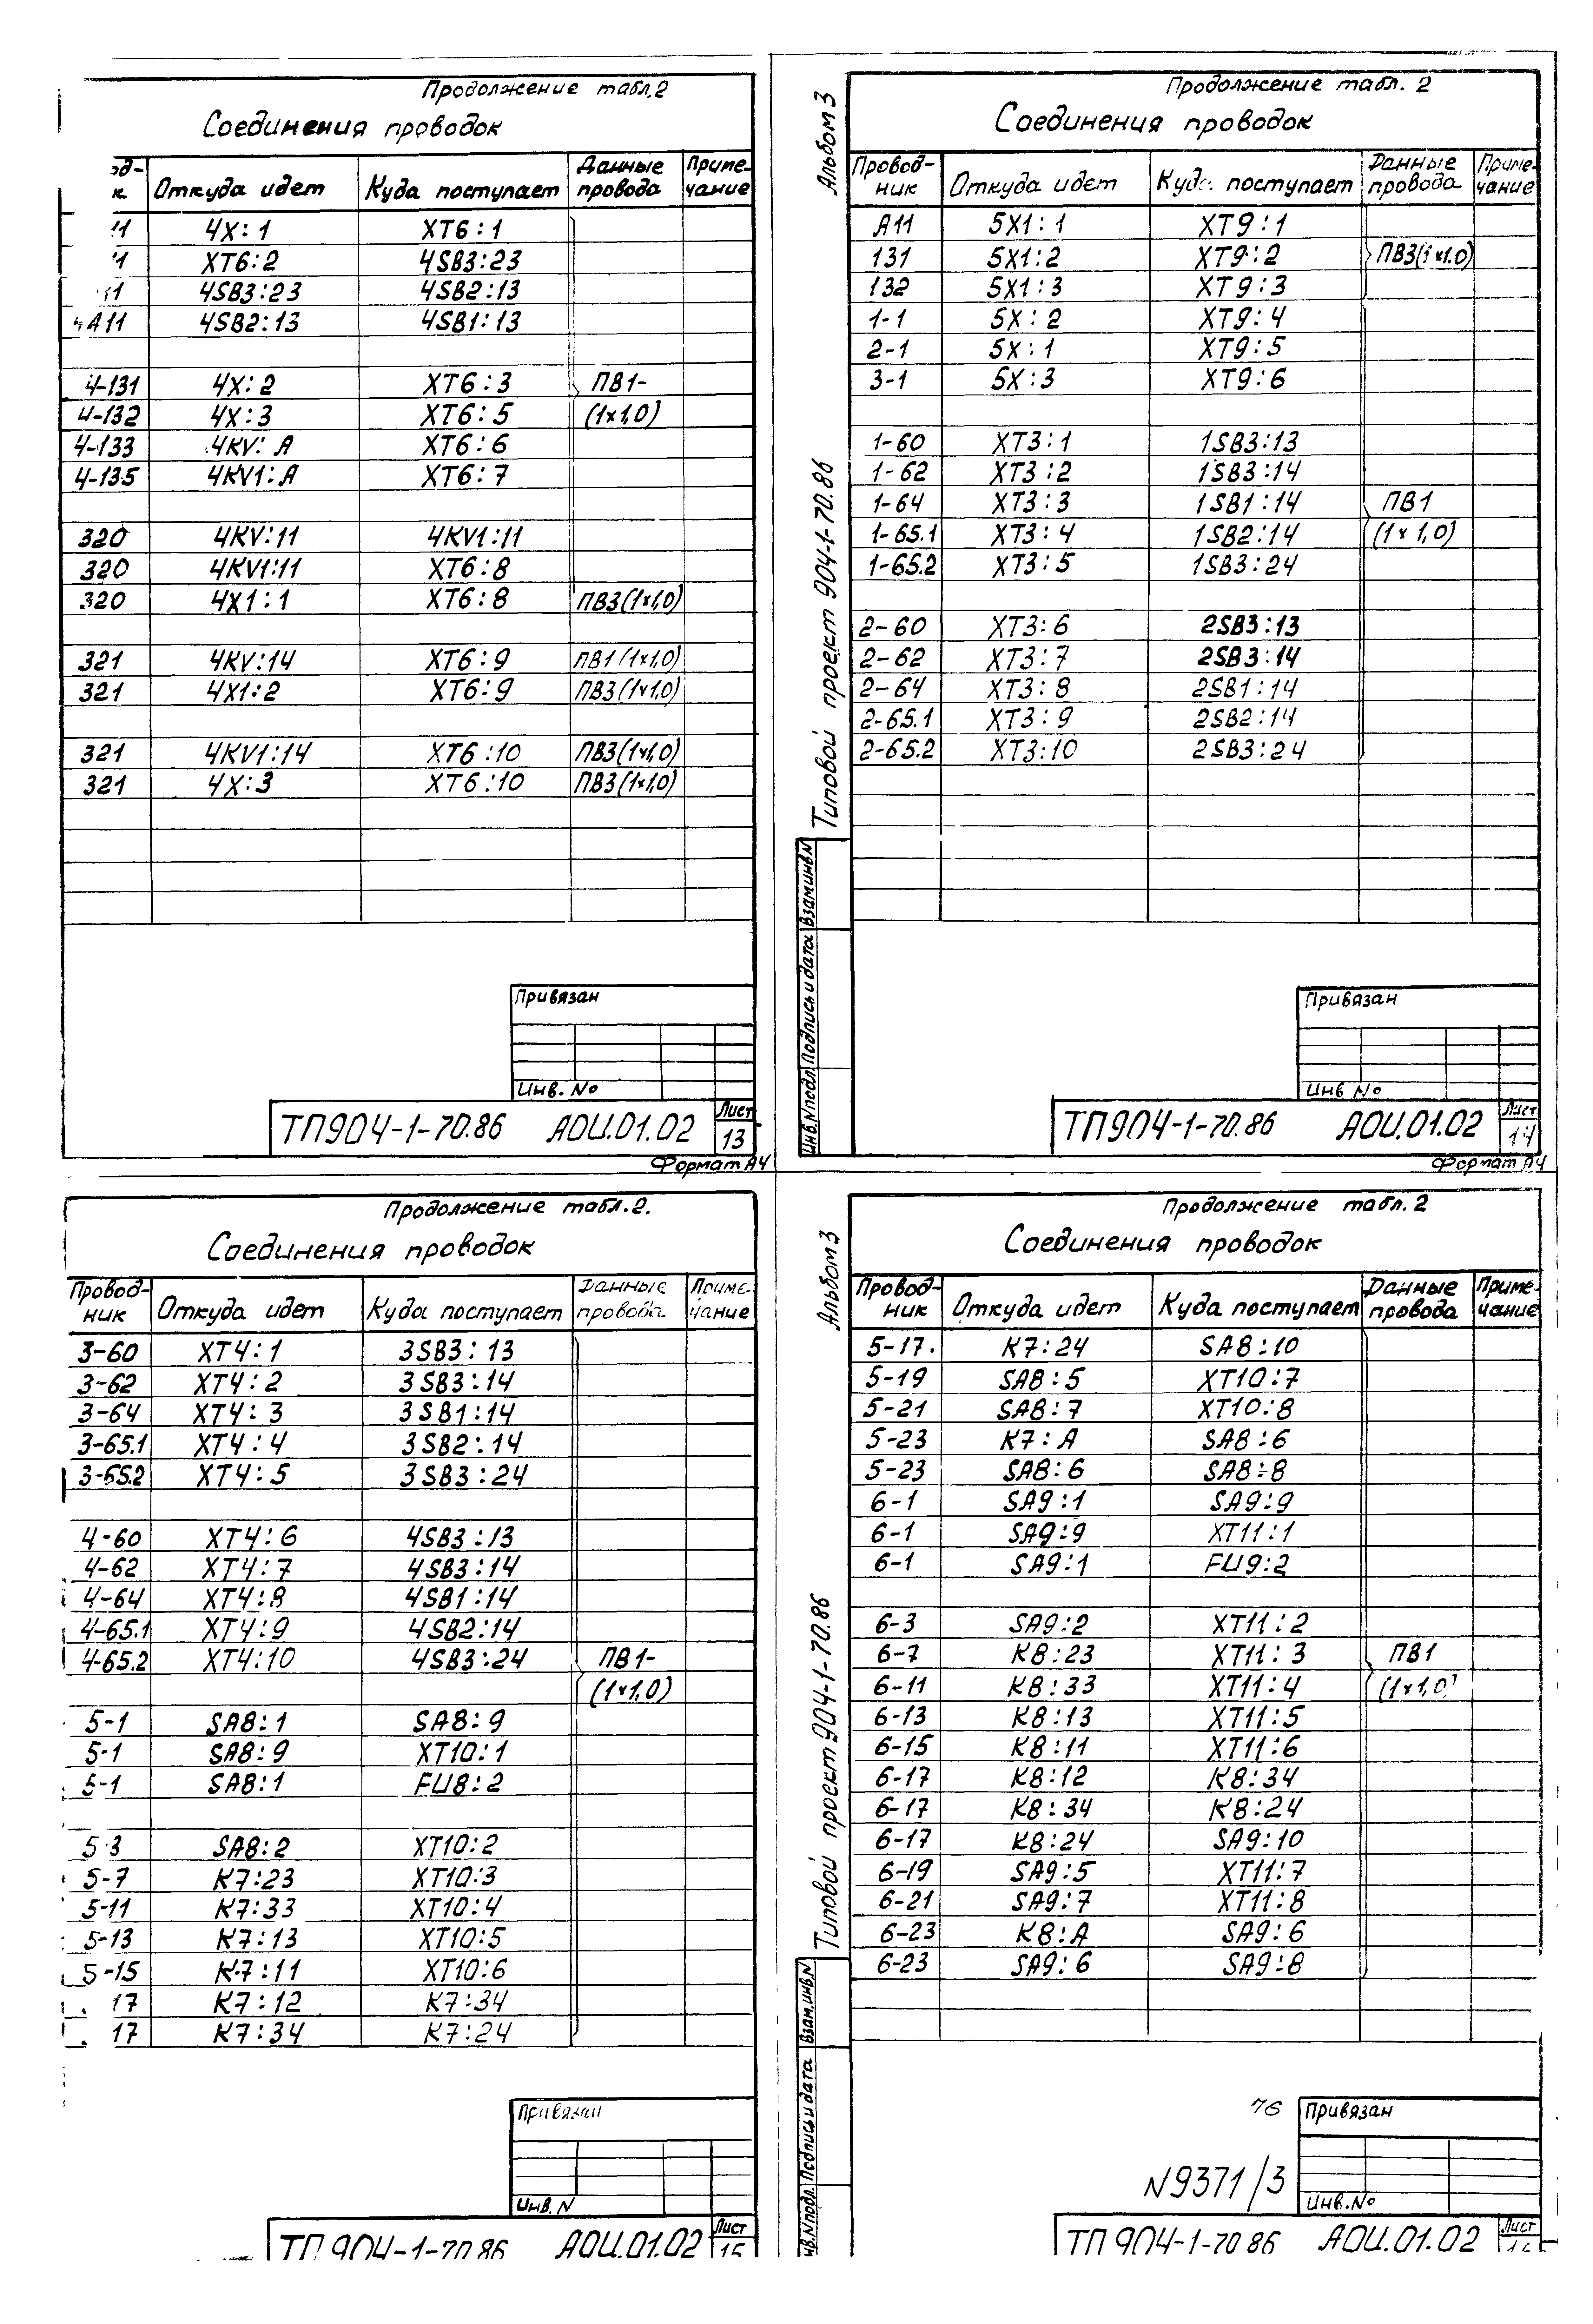 Продолжение табл.2
Соединения проводок
Откуда идет Куда поступает Данные провода Примечание
11 4X:1 XT6:1
1 XT6:2 4SB3:23
1 4SB3:23 4SB2:13
4A11 4SB2:13 4SB1:13
4-131 4X:2 XT6:3 ПВ1-
4-132 4X:3 XT6:5 (1x1,0)
4-133 4KV:A XT6:6
4-135 4KV1:A XT6:7
320 4KV:11 4KV1:11
320 4KV1:11 XT6:8
320 4X1:1 XT6:8 ПВ3(1x1,0)
321 4KV:14 XT6:9 ПВ1(1x1,0)
321 4X1:2 XT6:9 ПВ3(1x1,0)
321 4KV1:14 XT6:10 ПВ3(1x1,0)
321 4X:3 XT6:10 ПВ3(1x1,0)
Привязан
Инв. No
ТП904-1-70.86 АОИ.01.02 Лист 13
Формат А4
Альбом 3
Типовой проект 904-1-70.86
Инв.N подл. Подпись и дата Взам.инв.N
Продолжение табл. 2
Соединения проводок
Проводник Откуда идет Куда поступает Данные провода Примечание
A11 5X1:1 XT9:1
131 5X1:2 XT9:2 ПВ3(1x1.0)
132 5X1:3 XT9:3
1-1 5X:2 XT9:4
2-1 5X:1 XT9:5
3-1 5X:3 XT9:6
1-60 XT3:1 1SB3:13
1-62 XT3:2 1SB3:14
1-64 XT3:3 1SB1:14 ПВ1
1-65.1 XT3:4 1SB2:14 (1x1,0)
1-65.2 XT3:5 1SB3:24
2-60 XT3:6 2SB3:13
2-62 XT3:7 2SB3:14
2-64 XT3:8 2SB1:14
2-65.1 XT3:9 2SB2:14
2-65.2 XT3:10 2SB3:24
Привязан
Инв No
ТП904-1-70.86 АОИ.01.02 Лист 14
Формат А4
Продолжение табл.2.
Соединения проводок
Проводник Откуда идет Куда поступает Данные провода Примечание
3-60 XT4:1 3SB3:13
3-62 XT4:2 3SB3:14
3-64 XT4:3 3SB1:14
3-65.1 XT4:4 3SB2:14
3-65.2 XT4:5 3SB3:24
4-60 XT4:6 4SB3:13
4-62 XT4:7 4SB3:14
4-64 XT4:8 4SB1:14
4-65.1 XT4:9 4SB2:14
4-65.2 XT4:10 4SB3:24 ПВ1-
(1x1,0)
5-1 SA8:1 SA8:9
5-1 SA8:9 XT10:1
5-1 SA8:1 FU8:2
5-3 SA8:2 XT10:2
5-7 K7:23 XT10:3
5-11 K7:33 XT10:4
5-13 K7:13 XT10:5
5-15 K7:11 XT10:6
17 K7:12 K7:34
17 K7:34 K7:24
Привязан
Инв. N
ТП904-1-70.86 АОИ.01.02 Лист 15
Альбом 3
Типовой проект 904-1-70.86
Инв.N подл. Подпись и дата Взам.инв.N
Продолжение табл.2
Соединения проводок
Проводник Откуда идет Куда поступает Данные провода Примечание
5-17. K7:24 SA8:10
5-19 SA8:5 XT10:7
5-21 SA8:7 XT10:8
5-23 K7:A SA8:6
5-23 SA8:6 SA8:8
6-1 SA9:1 SA9:9
6-1 SA9:9 XT11:1
6-1 SA9:1 FU9:2
6-3 SA9:2 XT11:2
6-7 K8:23 XT11:3 ПВ1
6-11 K8:33 XT11:4 (1x1,0)
6-13 K8:13 XT11:5
6-15 K8:11 XT11:6
6-17 K8:12 K8:34
6-17 K8:34 K8:24
6-17 K8:24 SA9:10
6-19 SA9:5 XT11:7
6-21 SA9:7 XT11:8
6-23 K8:A SA9:6
6-23 SA9:6 SA9:8
76
N9371/3
Привязан
Инв.No
ТП904-1-70.86 АОИ.01.02 Лист